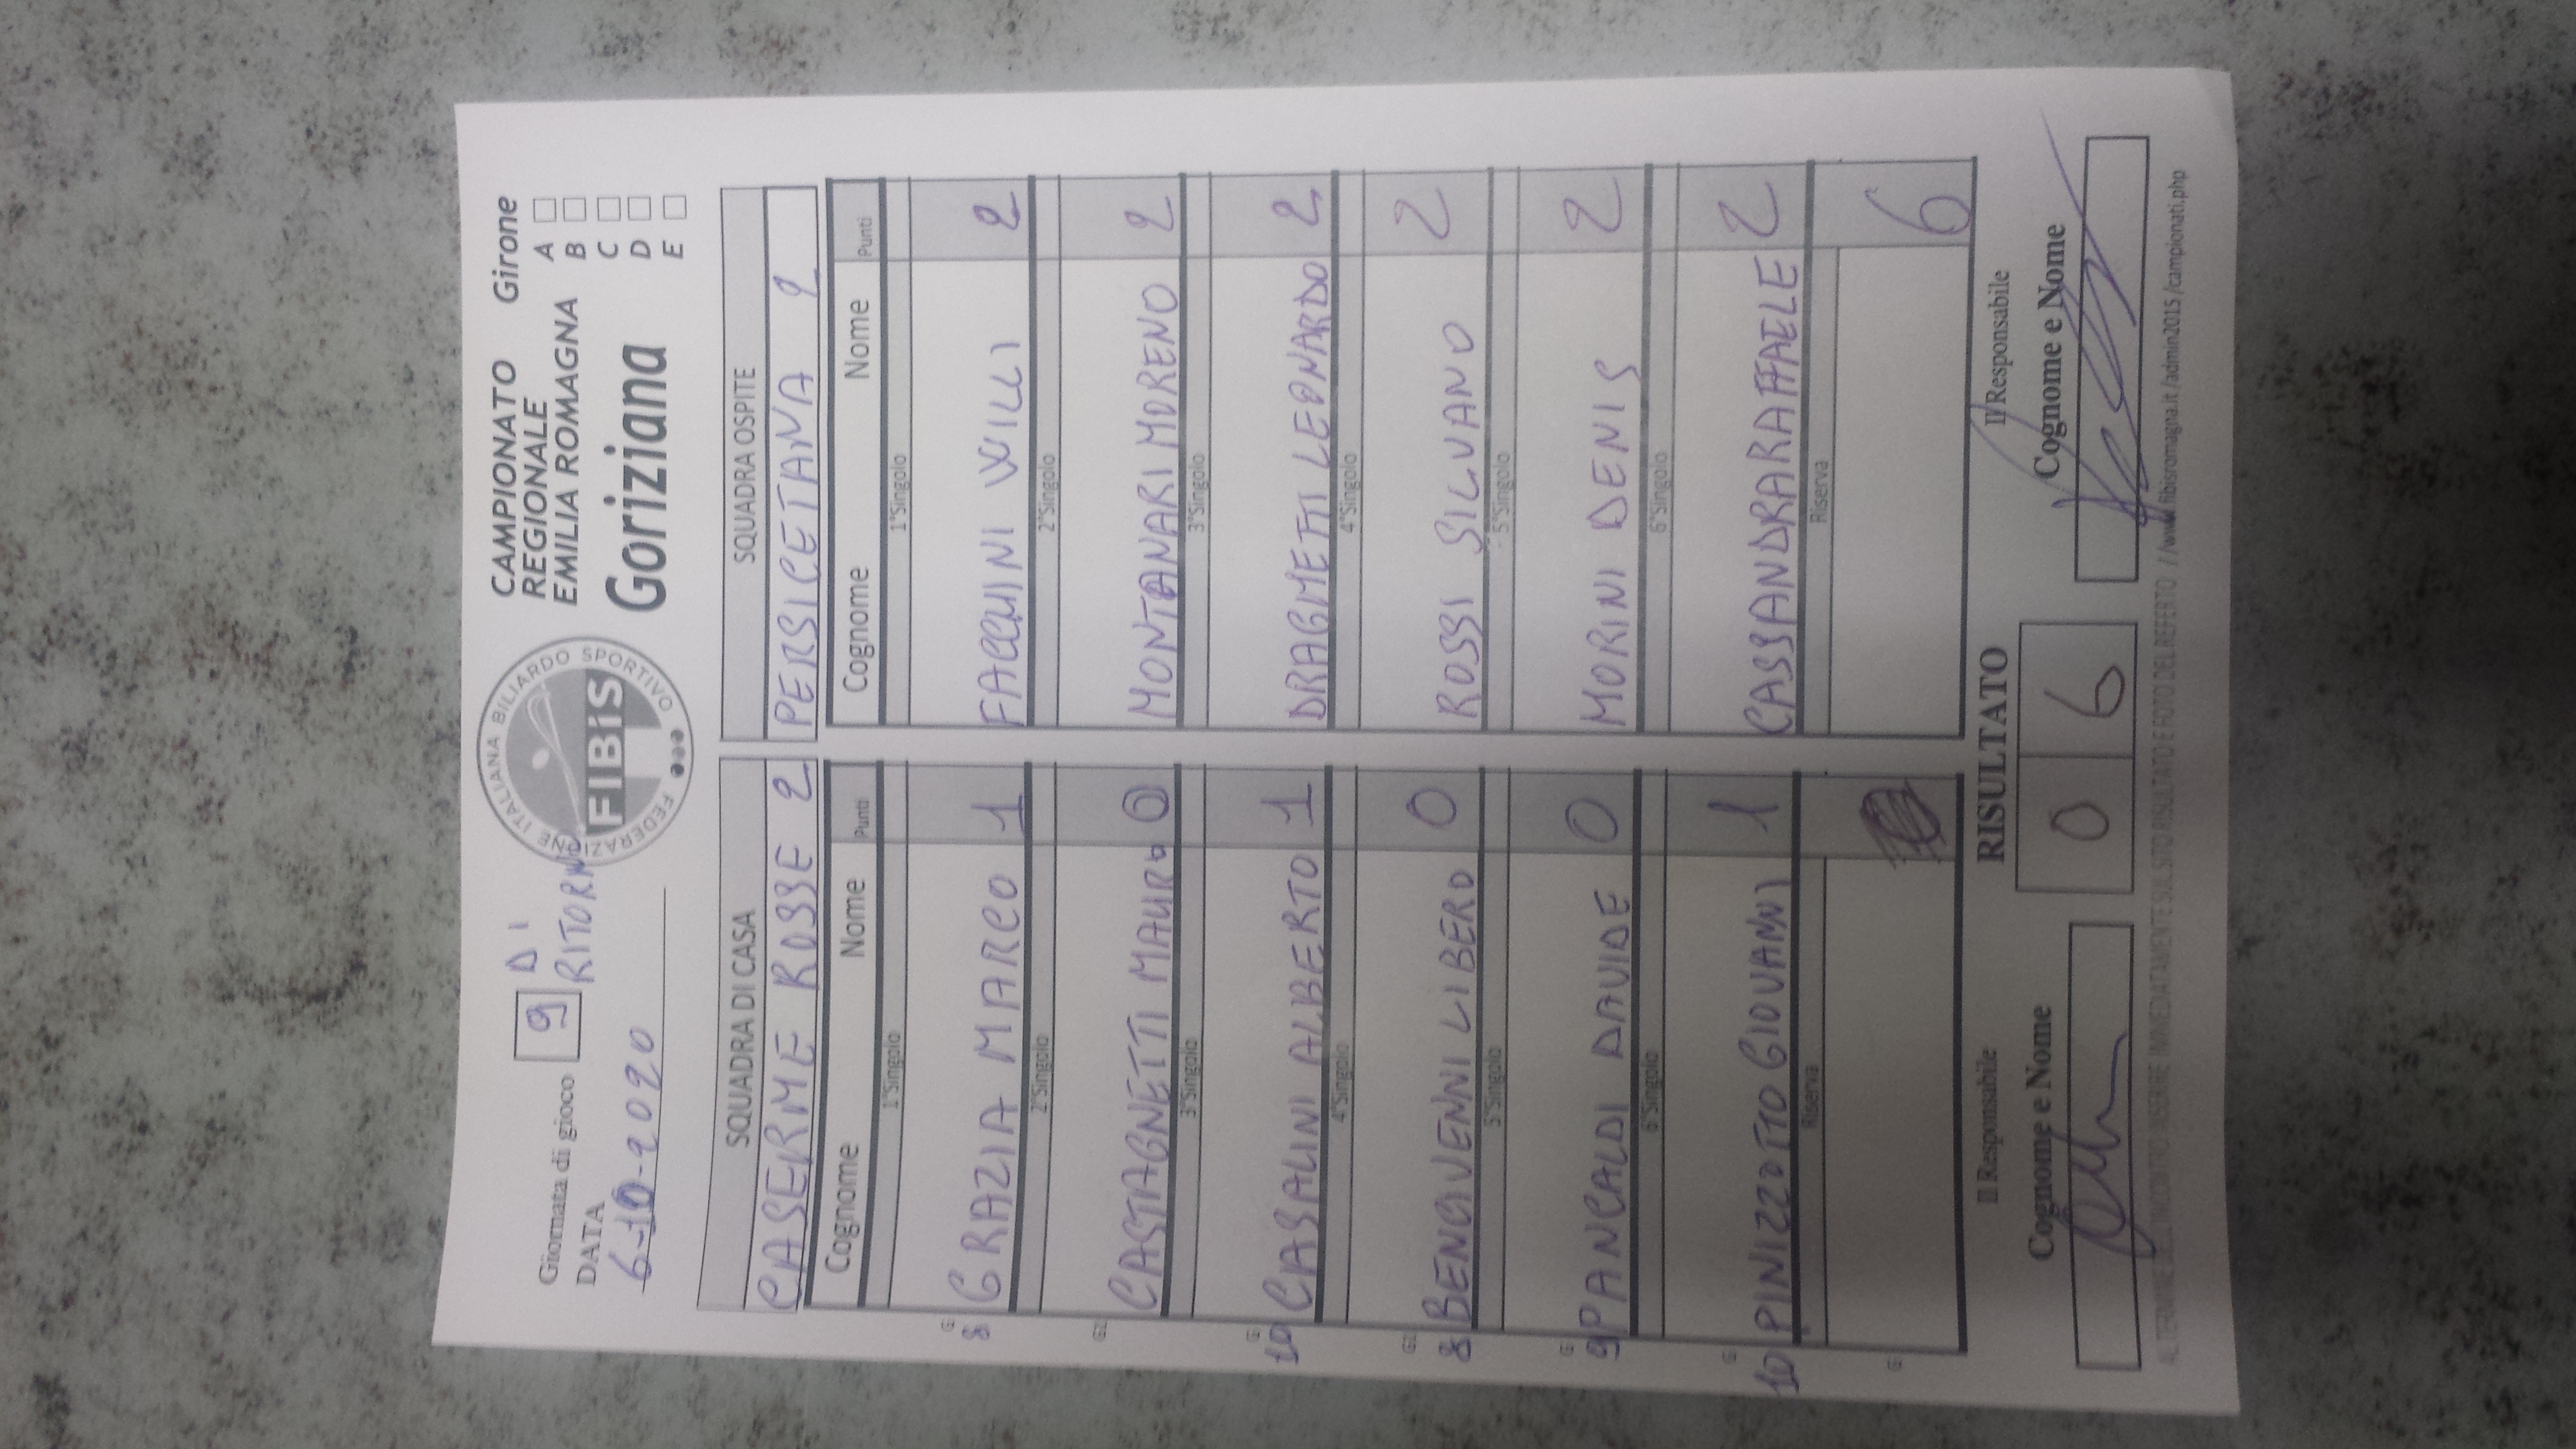 Giornata di gioco 9 DI
RITORNO
DATA
6-10-2020
FEDERAZIONE ITALIANA BILIARDO SPORTIVO
FIBiS
CAMPIONATO
REGIONALE
EMILIA ROMAGNA
Goriziana
Girone
A
B
C
D
E
SQUADRA DI CASA SQUADRA OSPITE
CASERME ROSSE 2 PERSICETANA 2
Cognome Nome Punti Cognome Nome Punti
1°Singolo 1°Singolo
G
8 GRAZIA MARCO 1 FACCHINI WILLI 2
2°Singolo 2°Singolo
CASTAGNETTI MAURO 0 MONTANARI MORENO 2
3°Singolo 3°Singolo
G
10 CASALINI ALBERTO 1 DRAGMETTI LEONARDO 2
4°Singolo 4°Singolo
8 BENCIVENNI LIBERO 0 ROSSI SILVANO 2
5°Singolo 5°Singolo
G
9 PANCALDI DAVIDE 0 MORINI DENIS 2
6°Singolo 6°Singolo
G
10 PINIZZOTTO GIOVANNI 1 CASSANDRA RAFFAELE 2
Riserva Riserva
G 6
Il Responsabile RISULTATO Il Responsabile
Cognome e Nome 0 6 Cognome e Nome
AL TERMINE DELL'INCONTRO INSERIRE IMMEDIATAMENTE SUL SITO RISULTATO E FOTO DEL REFERTO //www.fibisromagna.it/admin2015/campionati.php